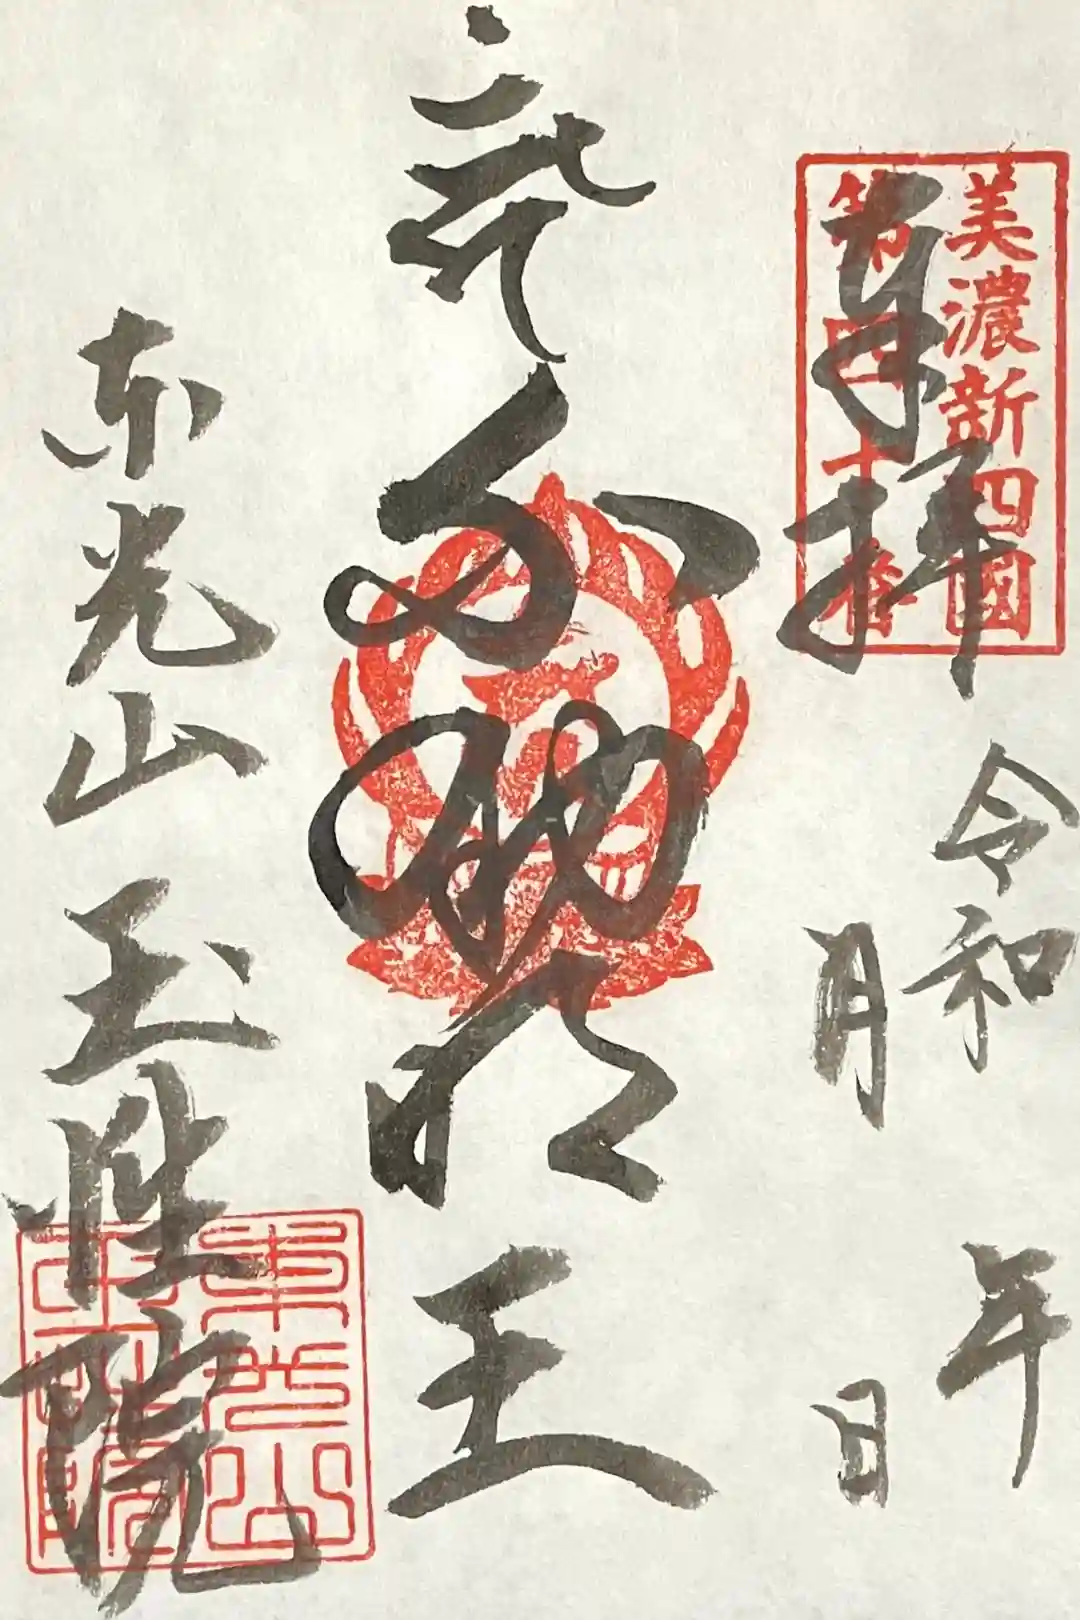 美濃新四國
第四十番
奉拝
令和　年
月　日
不動明王
東光山玉性院
東光山
玉性院